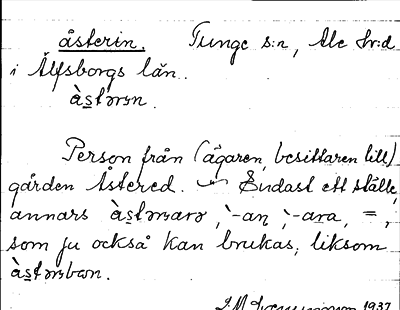 åsterin. Tunge s:n, Ale hr:d
i Älfsborgs län.
àstərɪn.
Person från (ägaren, besittaren till)
gården Åstered. — Endast ett ställe,
annars àstərarə, -aɳ, -ara, =,
som ju också kan brukas, liksom
àstərbən.
1937